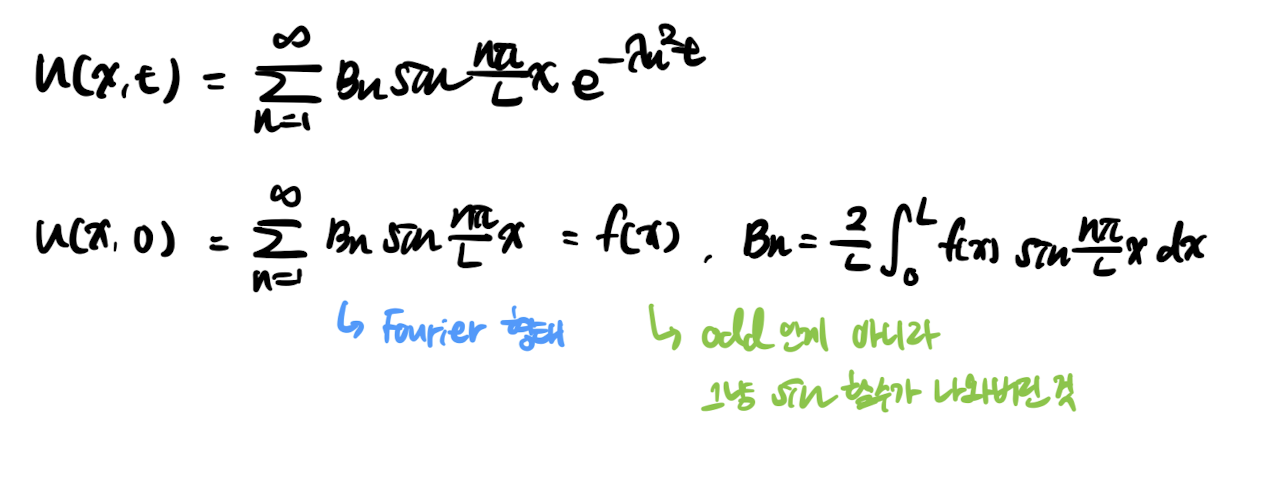 u(x,t) = ∑_{n=1}^{∞} Bn sin nπ/L x e^{-λn²t}
u(x,0) = ∑_{n=1}^{∞} Bn sin nπ/L x = f(x) . Bn = 2/L ∫_0^L f(x) sin nπ/L x dx
↳ Fourier 형태 ↳ odd 인게 아니라
그냥 sin 함수가 나와버린 것